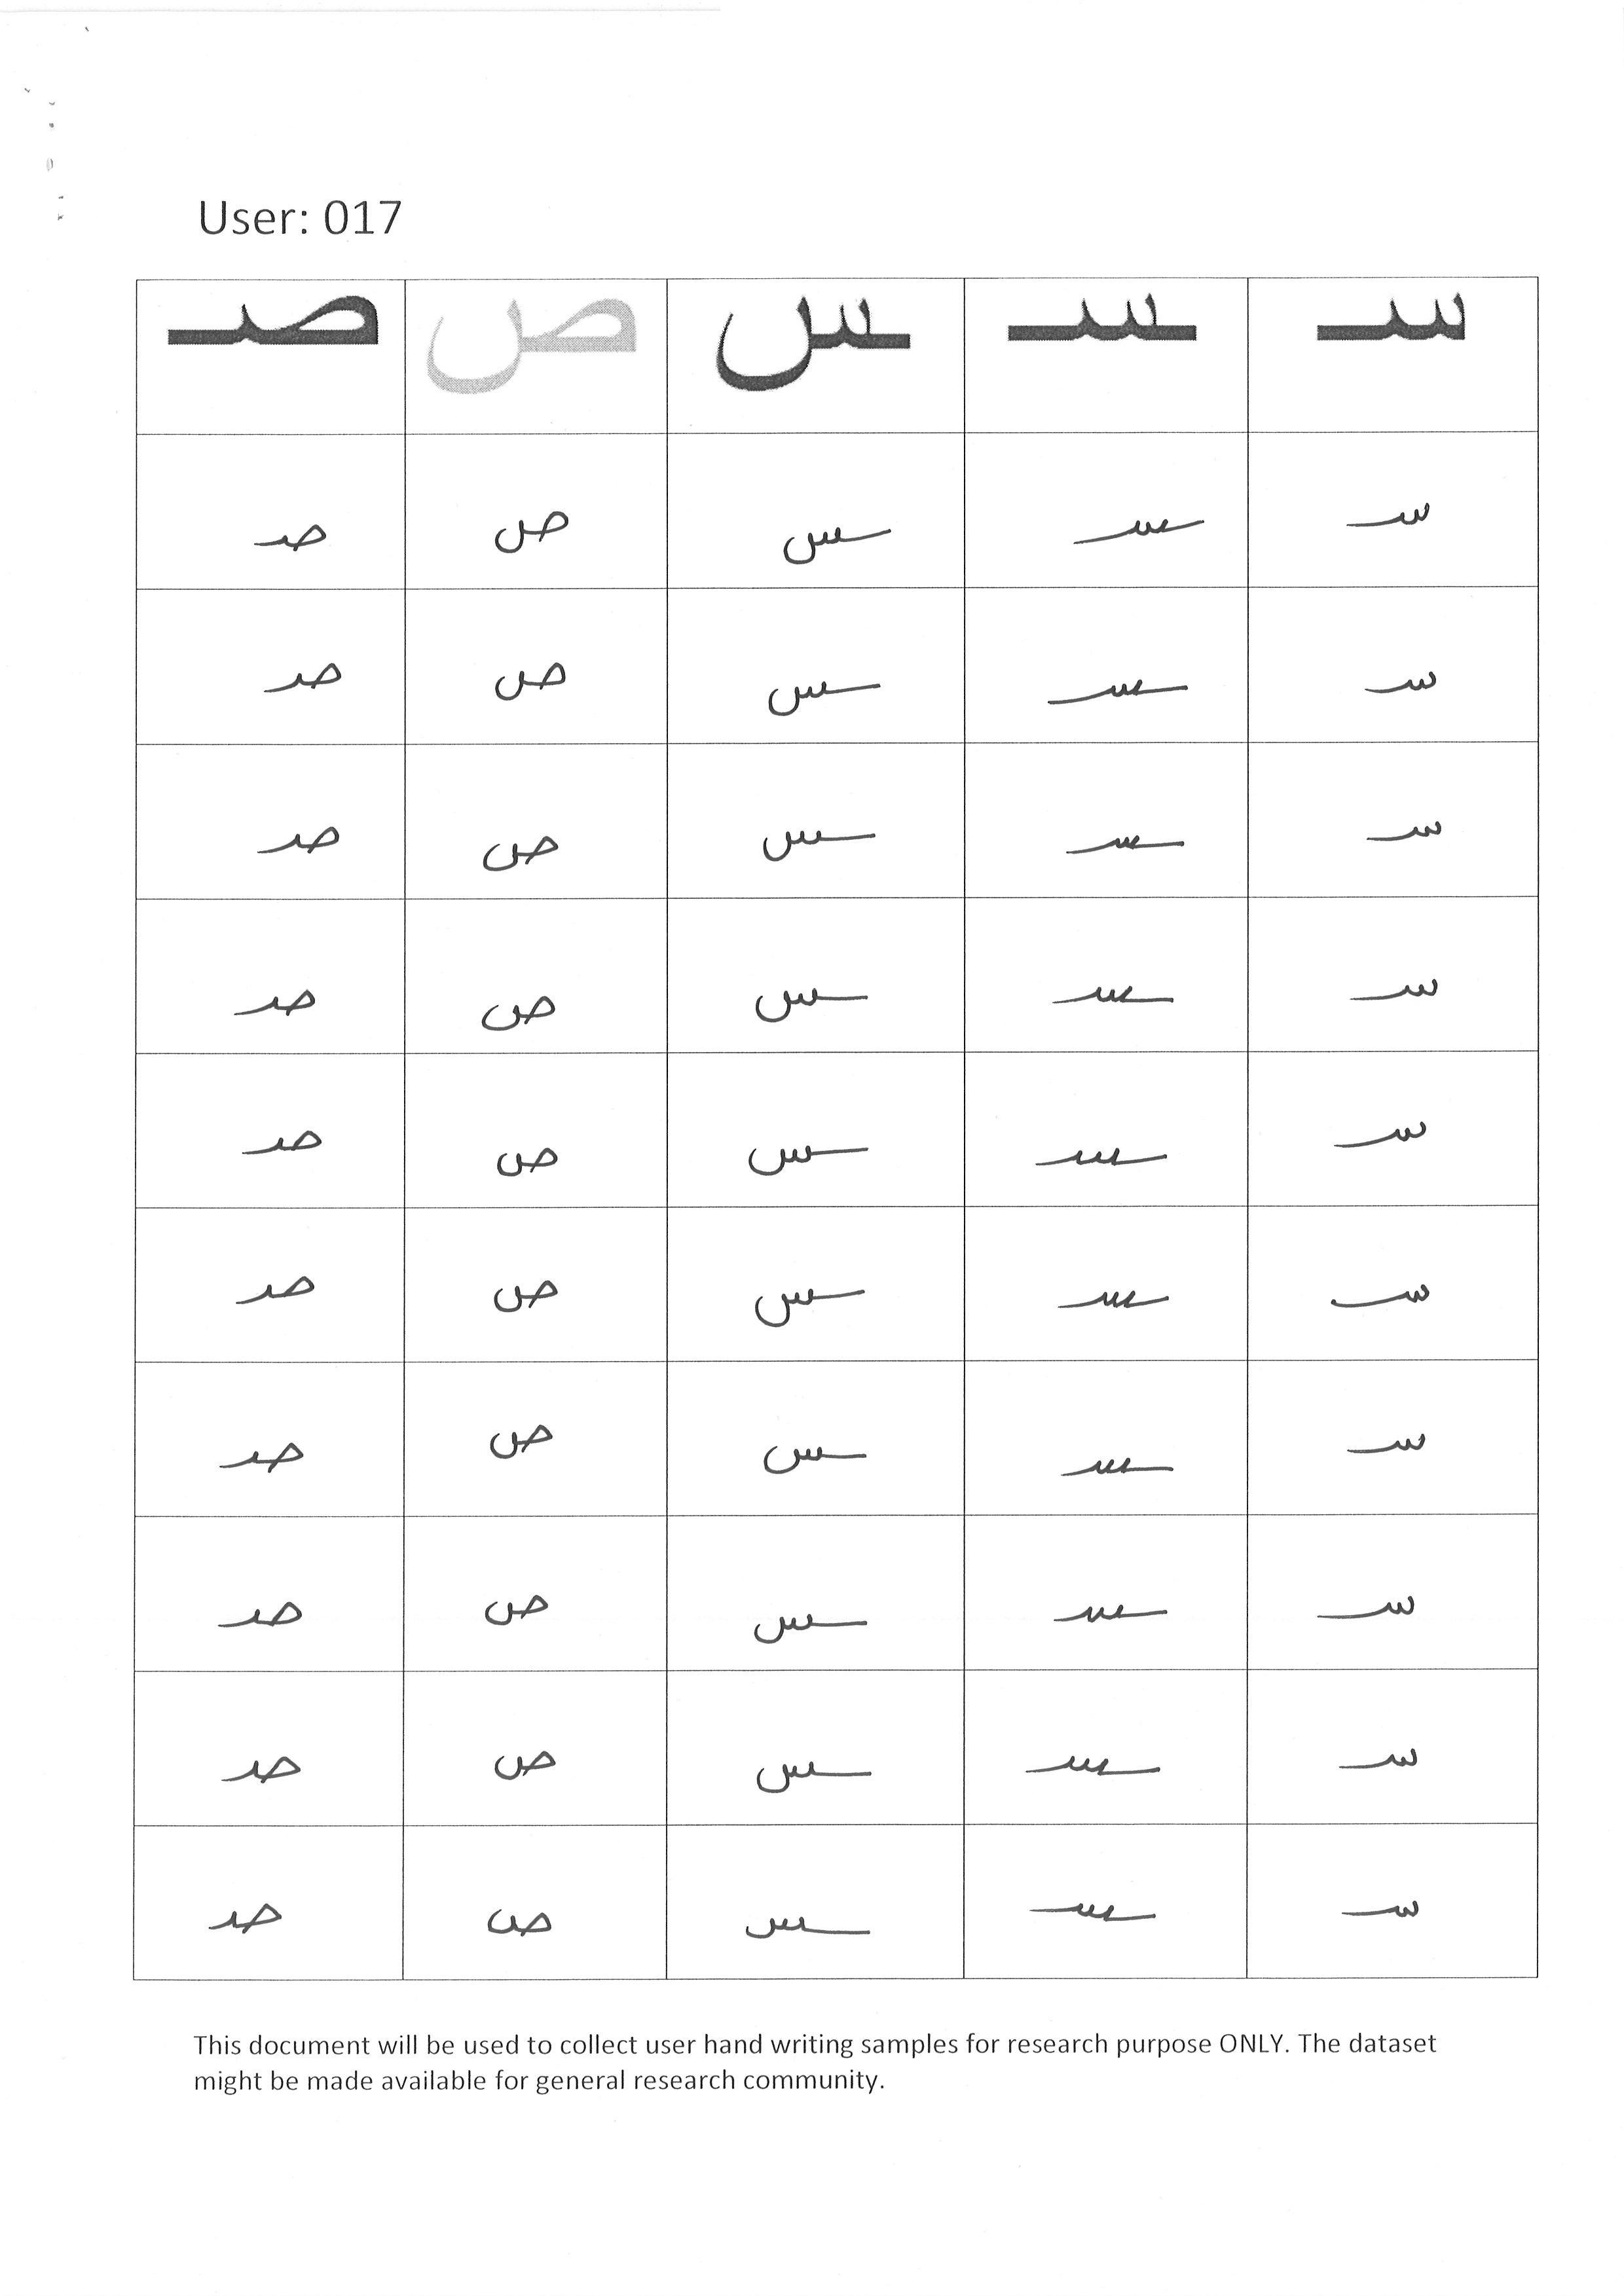 User: 017
سـ ـسـ ـس ص صـ
سـ ـسـ ـس ص صـ
سـ ـسـ ـس ص صـ
سـ ـسـ ـس ص صـ
سـ ـسـ ـس ص صـ
سـ ـسـ ـس ص صـ
سـ ـسـ ـس ص صـ
سـ ـسـ ـس ص صـ
سـ ـسـ ـس ص صـ
سـ ـسـ ـس ص صـ
سـ ـسـ ـس ص صـ
This document will be used to collect user hand writing samples for research purpose ONLY. The dataset
might be made available for general research community.